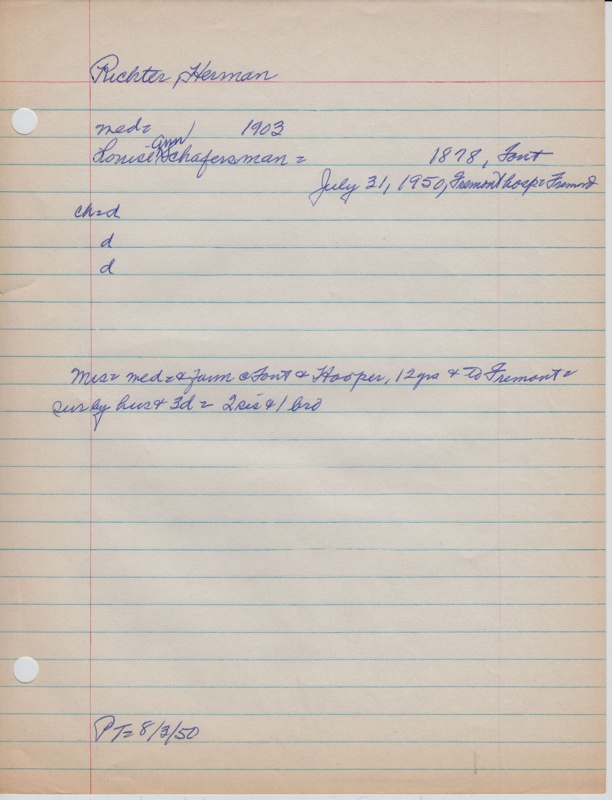 Richter, Herman
med= 1903
Ann
Louise Schafersman = 1878, Font
July 31, 1950, Fremont hosp= Fremont
ch=d
d
d
Mrs= med=& farm @ Font & Hooper, 12yrs & to Fremont=
sur by hus & 3d = 2sis & 1 bro
PT= 8/3/50